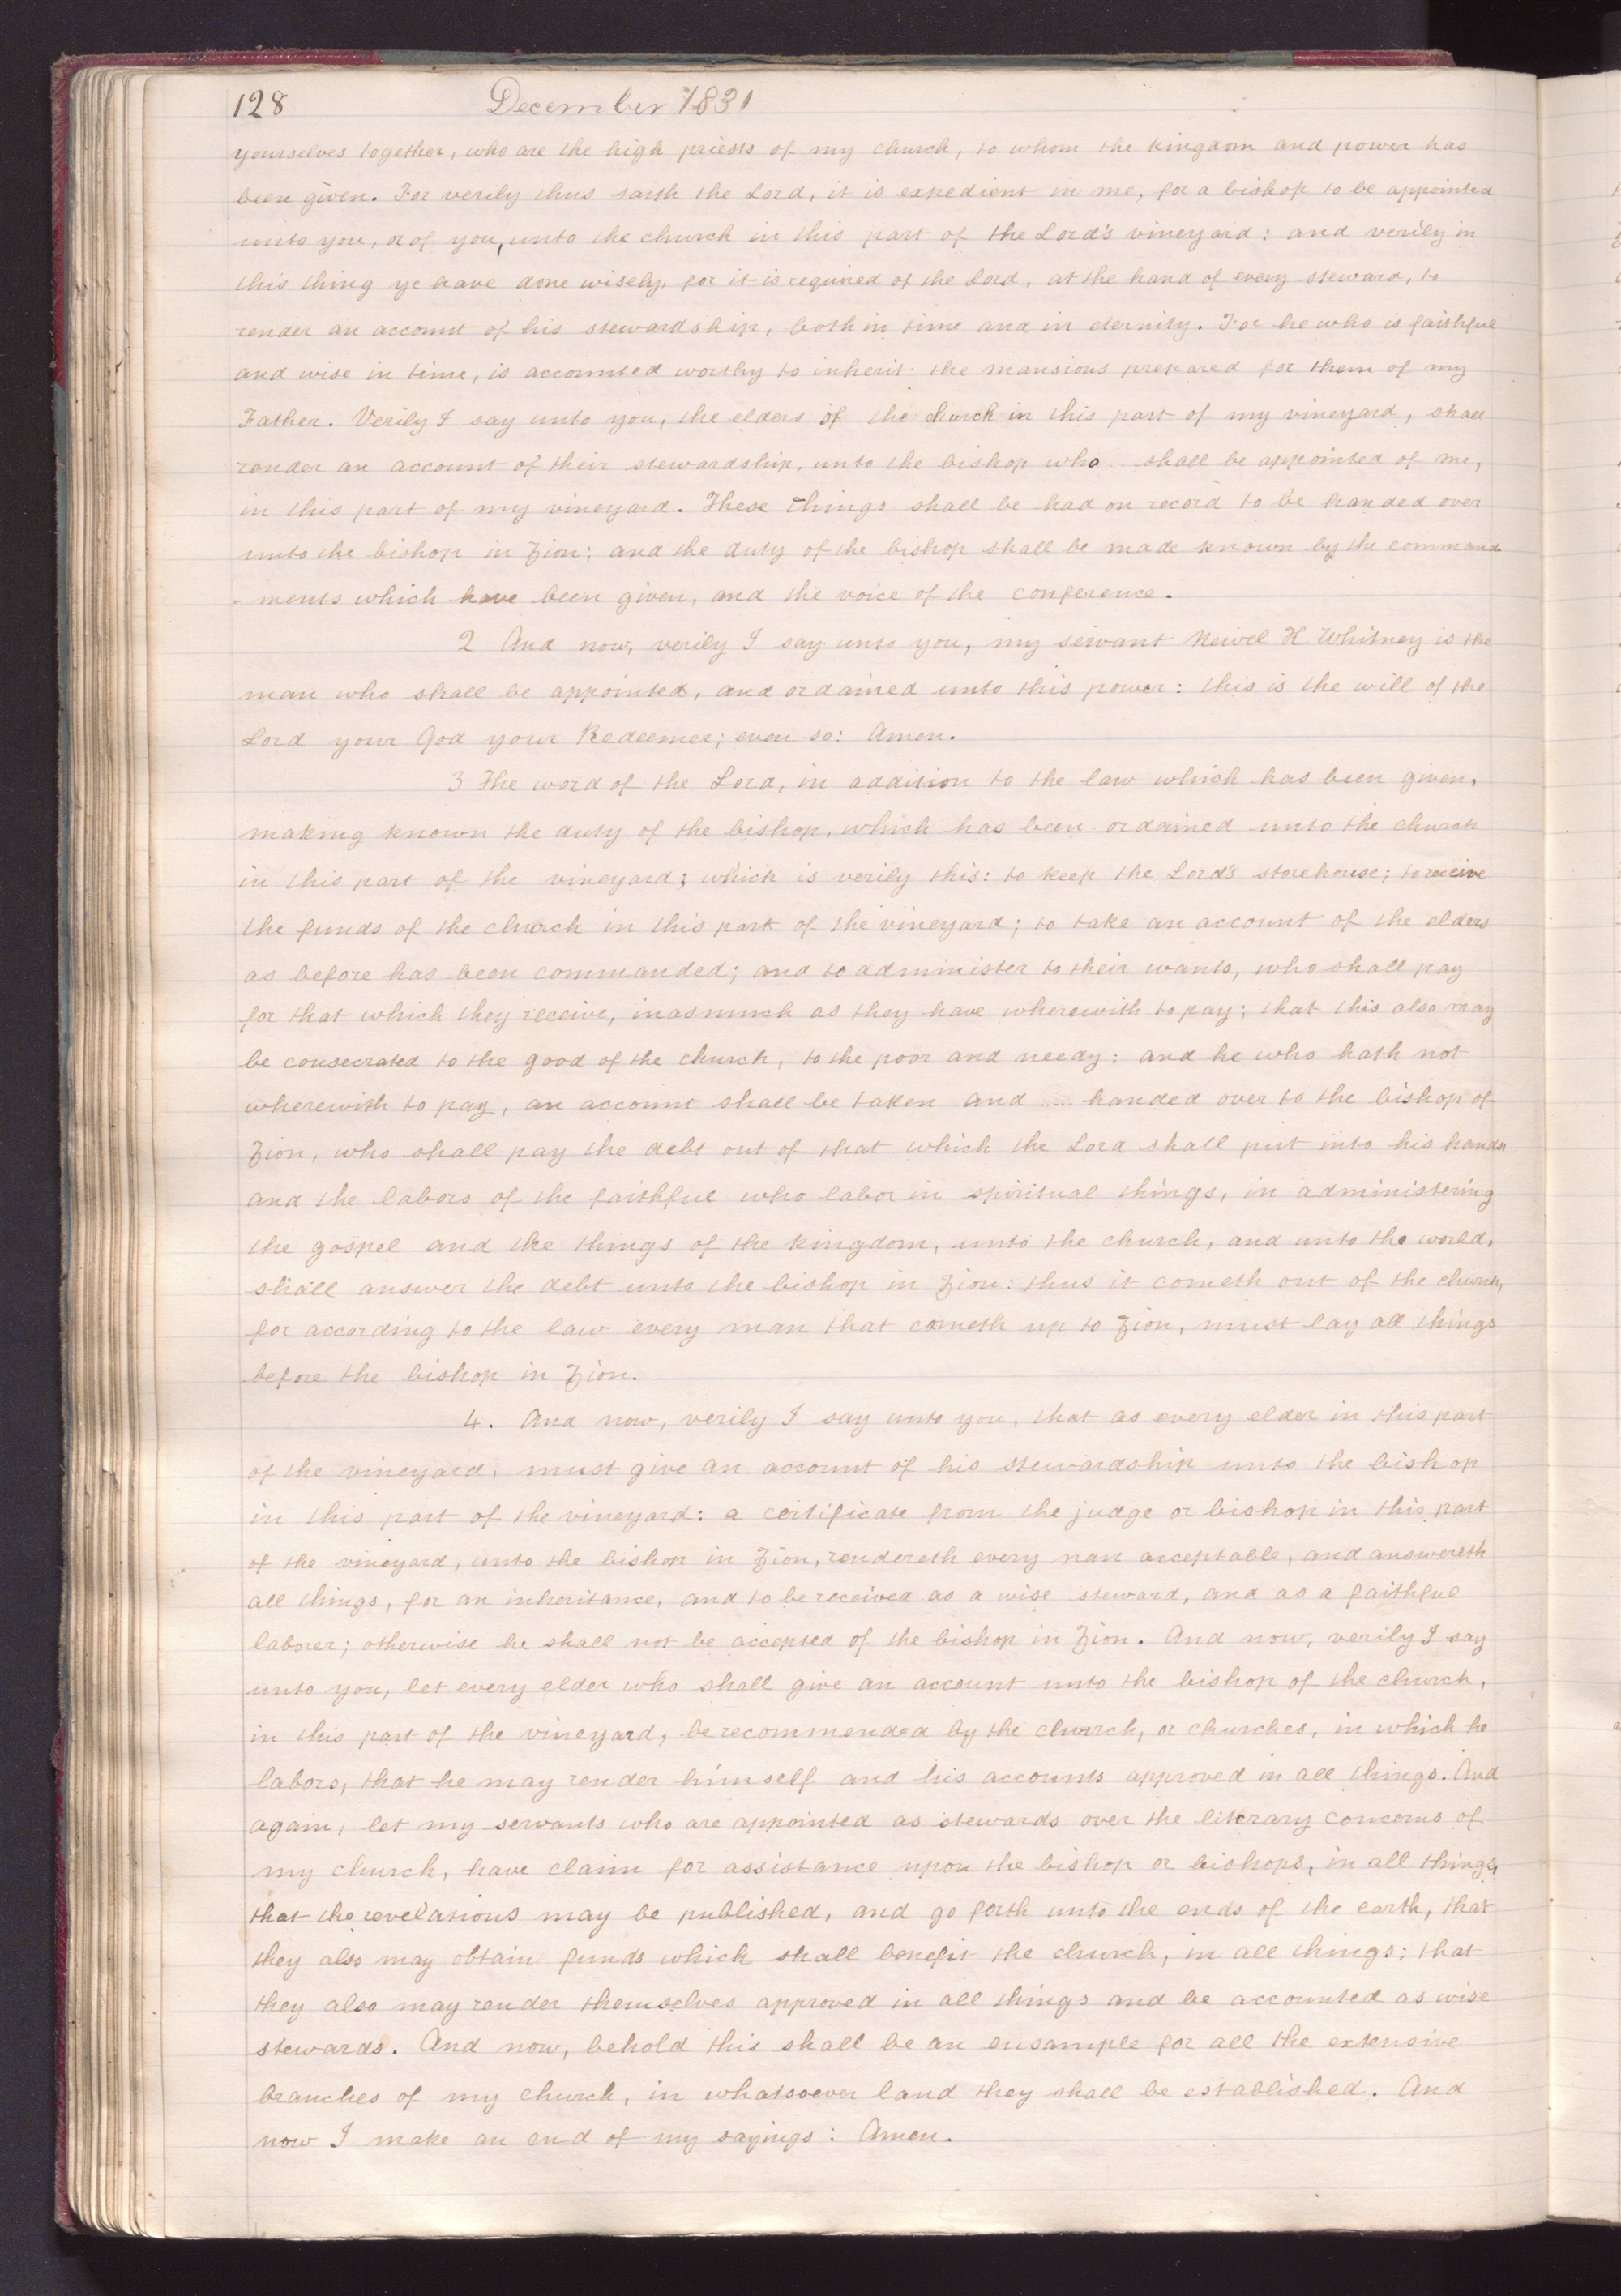 128 December 1831
yourselves together, who are the high priests of my church, to whom the kingdom and power has
been given. For verily thus saith the Lord, it is expedient in me, for a bishop to be appointed
unto you, or of you, unto the church in this part of the Lord's vineyard: and verily in
this thing ye have done wisely, for it is required of the Lord, at the hand of every steward, to
render an account of his stewardship, both in time and in eternity. For he who is faithful
and wise in time, is accounted worthy to inherit the mansions prepared for them of my
Father. Verily I say unto you, the elders of the church in this part of my vineyard, shall
render an account of their stewardship, unto the bishop who shall be appointed of me,
in this part of my vineyard. These things shall be had on record to be handed over
unto the bishop in Zion; and the duty of the bishop shall be made known by the command
-ments which have been given, and the voice of the conference.
2 And now, verily I say unto you, my servant Newel K Whitney is the
man who shall be appointed, and ordained unto this power: this is the will of the
Lord your God your Redeemer; even so: Amen.
3 The word of the Lord, in addition to the law which has been given,
making known the duty of the bishop, which has been ordained unto the church
in this part of the vineyard; which is verily this: to keep the Lord's storehouse; to receive
the funds of the church in this part of the vineyard; to take an account of the elders
as before has been commanded; and to administer to their wants, who shall pay
for that which they receive, inasmuch as they have wherewith to pay; that this also may
be consecrated to the good of the church, to the poor and needy: and he who hath not
wherewith to pay, an account shall be taken and .... handed over to the bishop of
Zion, who shall pay the debt out of that which the Lord shall put into his hands:
and the labors of the faithful who labor in spiritual things, in administering
the gospel and the things of the kingdom, unto the church, and unto the world,
shall answer the debt unto the bishop in Zion: thus it cometh out of the church,
for according to the law every man that cometh up to Zion, must lay all things
before the bishop in Zion.
4. And now, verily I say unto you, that as every elder in this part
of the vineyard, must give an account of his stewardship unto the bishop
in this part of the vineyard: a certificate from the judge or bishop in this part
of the vineyard, unto the bishop in Zion, rendereth every man acceptable, and answereth
all things, for an inheritance, and to be received as a wise steward, and as a faithful
laborer; otherwise he shall not be accepted of the bishop in Zion. And now, verily I say
unto you, let every elder who shall give an account unto the bishop of the church,
in this part of the vineyard, be recommended by the church, or churches, in which he
labors, that he may render himself and his accounts approved in all things. And
again, let my servants who are appointed as stewards over the literary concerns of
my church, have claim for assistance upon the bishop or bishops, in all things,
that the revelations may be published, and go forth unto the ends of the earth, that
they also may obtain funds which shall benefit the church, in all things; that
they also may render themselves approved in all things and be accounted as wise
stewards. And now, behold this shall be an ensample for all the extensive
branches of my church, in whatsoever land they shall be established. And
now I make an end of my sayings: Amen.